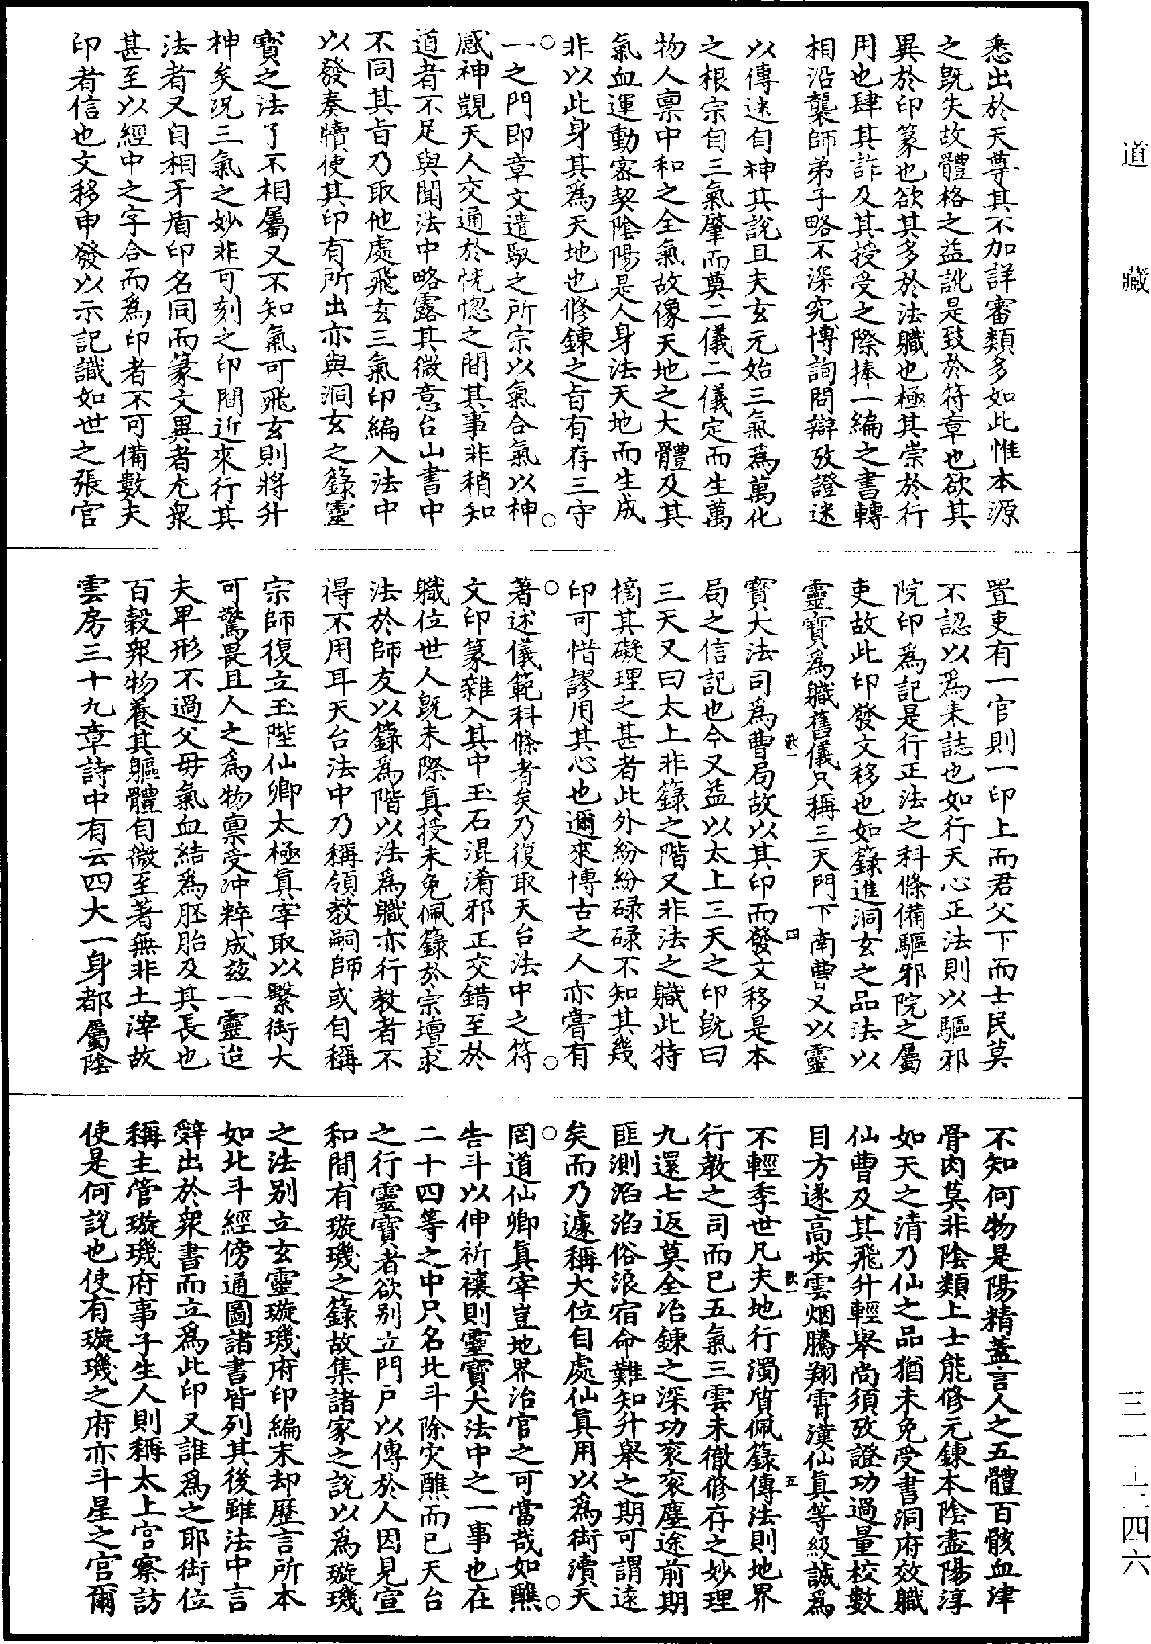 悉出於天尊其不加詳審類多如此惟本源
之既失故體格之益訛是致於符章也欲其
異於印篆也欲其多於法職也極其崇於行
用也肆其詐及其授受之際捧一編之書轉
相沿襲師弟子略不深究博詢問辯攷證迷
以傳迷自神其說且夫玄元始三氣爲萬化
之根宗自三氣肇而奠二儀二儀定而生萬
物人禀中和之全氣故像天地之大體及其
氣血運動密契陰陽是人身法天地而生成
非以此身其爲天地也修鍊之旨有存三守
一之門即章文遣馭之所宗以氣合氣以神
感神覬天人交通於恍惚之間其事非稍知
道者不足與聞法中略露其微意台山書中
不同其旨乃取他處飛玄三氣印編入法中
以發奏牘使其印有所出亦與洞玄之籙靈
寶之法了不相屬又不知氣可飛玄則將升
神矣況三氣之妙非可刻之印間近來行其
法者又自相矛盾印名同而篆文異者尤衆
甚至以經中之字合而爲印者不可備數夫
印者信也文移申發以示記識如世之張官
置吏有一官則一印上而君父下而士民莫
不認以爲耒誌也如行天心正法則以驅邪
院印爲記是行正法之科條備驅邪院之屬
吏故此印發文移也如籙進洞玄之品法以
靈寶爲職舊儀只稱三天門下南曹又以靈
寶大法司爲曹局故以其印而發文移是本
局之信記也今又益以太上三天之印既曰
三天又曰太上非籙之階又非法之職此特
摘其礙理之甚者此外紛紛碌碌不知其幾
印可惜謬用其心也邇來博古之人亦嘗有
著述儀範科條者矣乃復取天台法中之符
文印篆雜入其中玉石混淆邪正交錯至於
職位世人既未際真授未免佩籙於宗壇求
法於師友以籙爲階以法爲職亦行教者不
得不用耳天台法中乃稱領教嗣師或自稱
宗師復立玉陛仙卿太極真宰取以繫銜大
可驚畏且人之爲物禀受沖粹成茲一靈迨
夫卑形不過父母氣血結爲胚胎及其長也
百穀衆物養其軀體自微至著無非土滓故
雲房三十九章詩中有云四大一身都屬陰
不知何物是陽精蓋言人之五體百骸血津
骨肉莫非陰類上士能修元鍊本陰盡陽淳
如天之清乃仙之品猶未免受書洞府效職
仙曹及其飛升輕舉尚須攷證功過量校數
目方遂高步雲烟騰翔霄漢仙真等級誠爲
不輕季世凡夫地行濁質佩籙傳法則地界
行教之司而已五氣三雲未徹修存之妙理
九還七返莫全冶鍊之深功衮衮塵途前期
匪測滔滔俗浪宿命難知升舉之期可謂遠
矣而乃遽稱大位自處仙真用以爲銜瀆天
罔道仙卿真宰豈地界治官之可當哉如醮
告斗以伸祈禳則靈寶大法中之一事也在
二十四等之中只名北斗除灾醮而已天台
之行靈寶者欲別立門戶以傳於人因見宣
和間有璇璣之籙故集諸家之說以爲璇璣
之法別立玄靈璇璣府印編末却歷言所本
如北斗經傍通圖諸書皆列其後雖法中言
辭出於衆書而立爲此印又誰爲之耶銜位
稱主管璇璣府事子生人則稱太上宮察訪
使是何說也使有璇璣之府亦斗星之宫爾
道藏
三一—六四六